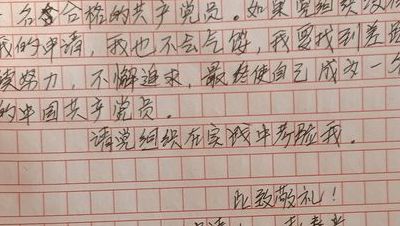 一名合格的共产党员。如果党组织没
我的申请,我也不会气馁,我要找到差距
续努力,不懈追求,最终使自己成为一名
的中国共产党员。
请党组织在实践中考验我。
此致敬礼!